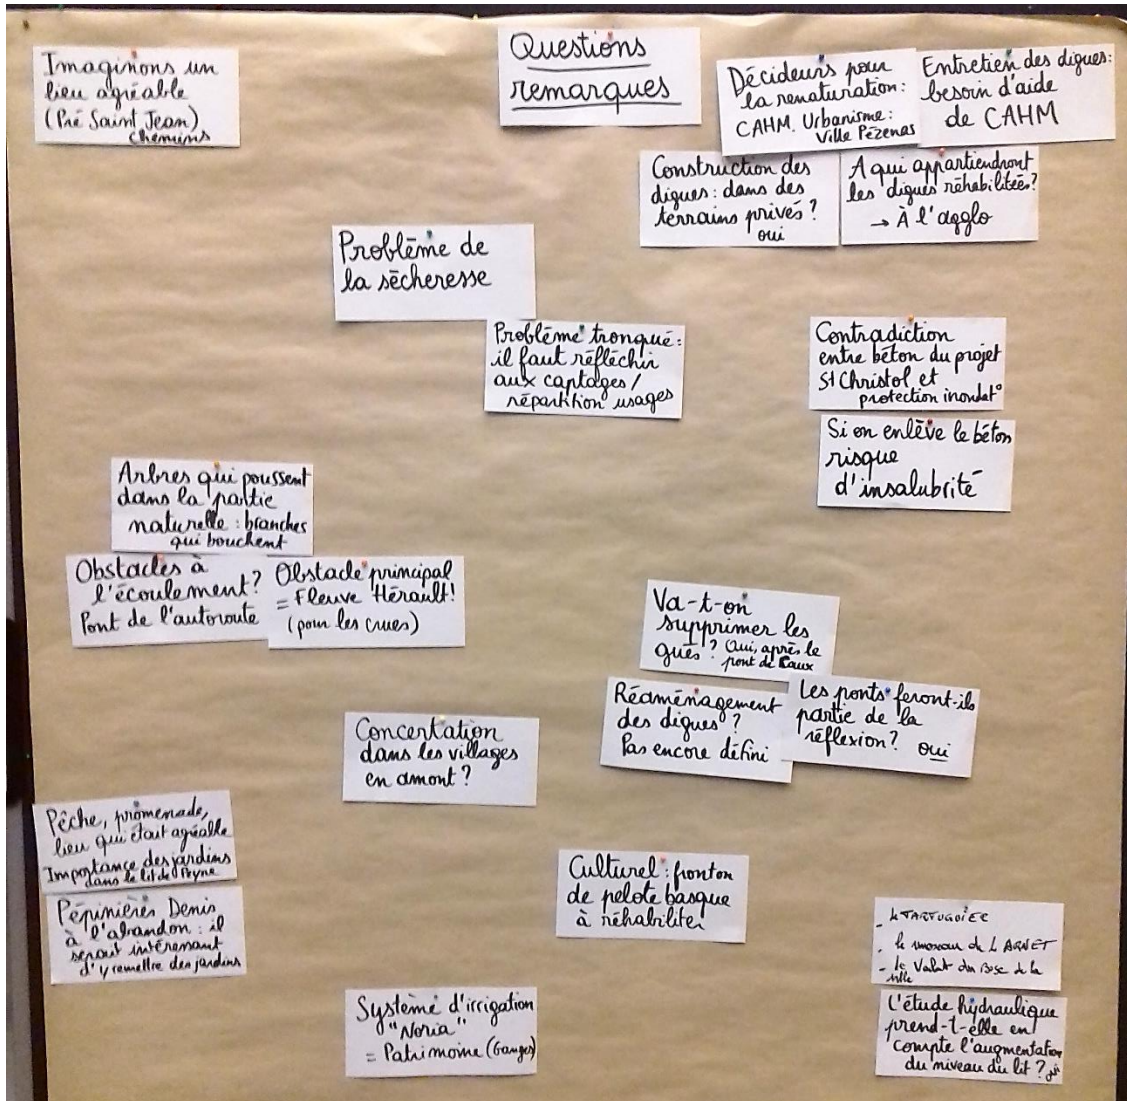 Questions
remarques
Imaginons un
lieu agréable
(Pré Saint Jean)
Chemins
Décideurs pour
la renaturation :
CAHM. Urbanisme :
Ville Pézenas
Entretien des digues :
besoin d'aide
de CAHM
Construction des
digues : dans des
terrains privés ?
oui
A qui appartiendront
les digues réhabilitées ?
→ À l'agglo
Problème de
la sècheresse
Problème tronqué :
il faut réfléchir
aux captages /
répartition usages
Contradiction
entre béton du projet
St Christol et
protection inondat°
Si on enlève le béton
risque
d'insalubrité
Arbres qui poussent
dans la partie
naturelle : branches
qui bouchent
Obstacles à
l'écoulement ?
Pont de l'autoroute
Obstacle principal
= Fleuve Hérault !
(pour les crues)
Va-t-on
supprimer les
gués ? Oui, après le
pont de Caux
Réaménagement
des digues ?
Pas encore défini
Les ponts feront-ils
partie de la
réflexion ? oui
Concertation
dans les villages
en amont ?
Pêche, promenade,
lieu qui était agréable
Importance des jardins
dans le lit de Peyne
Pépinières Denis
à l'abandon : il
serait intéressant
d'y remettre des jardins
Culturel : fronton
de pelote basque
à réhabiliter
Système d'irrigation
"Noria"
= Patrimoine (Ganges)
-
. le de L
- le Valat du de la
ville
L'étude hydraulique
prend-t-elle en
compte l'augmentation
du niveau du lit ?